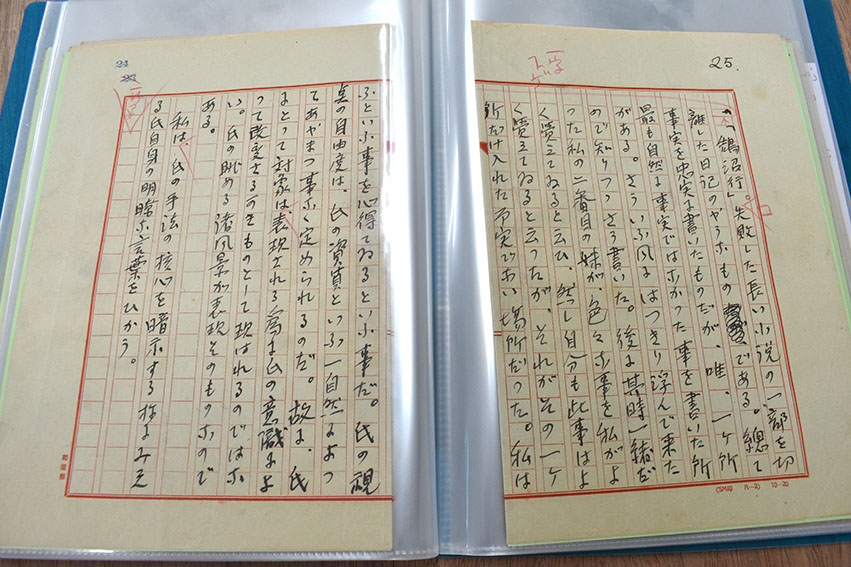 24
ふといふ事を心得てゐるといふ事だ。氏の視
点の自由度は、氏の資質といふ一自然によつ
てあやまつ事なく定められるのだ。故に、氏
にとつて対象は、表現される為に氏の意識によ
つて改変さるべきものとして現はれるのではな
い。氏の眺める諸風景が表現そのものなので
ある。
私は、氏の手法の核心を暗示する様にみえ
る氏自身の明瞭な言葉をひかう。
25.
「鵠沼行」、失敗した長い小説の一部を切
離した日記のやうなものである。總て
事実を忠実に書いたものだが、唯、一ヶ所
最も自然な事実ではなかつた事を書いた所
がある。さういふ風にはつきり浮んで来た
ので知りつつさう書いた。後に其時一緒だ
つた私の二番目の妹が、色々な事を私がよ
く覚えてゐると云ひ、然し自分も此事はよ
く覚えてゐると云つたが、それがその一ヶ
所だけ入れた事実でない場所だつた。私は
10-20